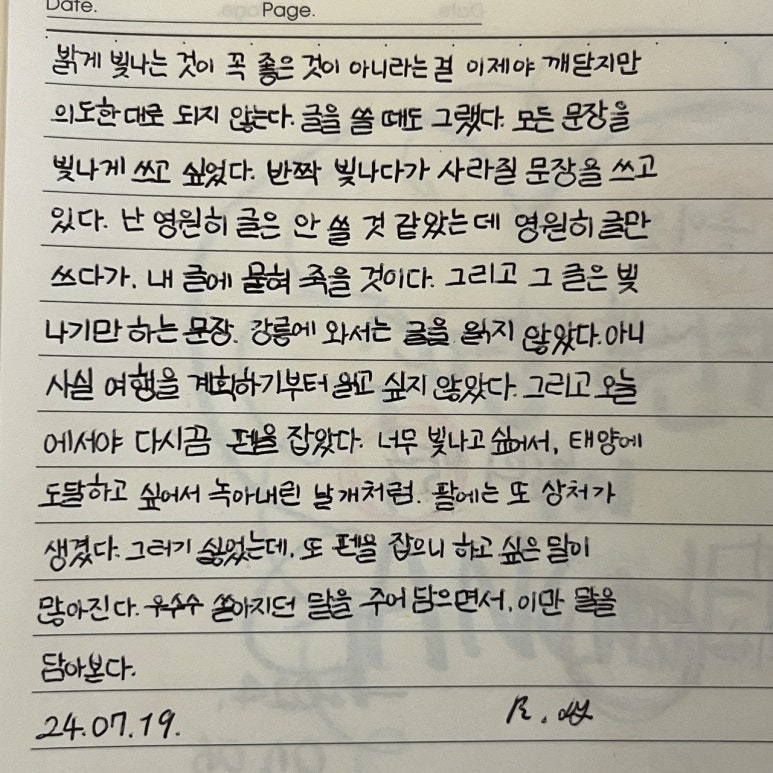 Date. Page.
밝게 빛나는 것이 꼭 좋은 것이 아니라는 걸 이제야 깨닫지만
의도한대로 되지 않는다. 글을 쓸 때도 그랬다. 모든 문장을
빛나게 쓰고 싶었다. 반짝 빛나다가 사라질 문장을 쓰고
있다. 난 영원히 글은 안 쓸 것 같았는데 영원히 글만
쓰다가, 내 글에 묻혀 죽을 것이다. 그리고 그 글은 빛
나기만 하는 문장. 강릉에 와서는 글을 읽지 않았다. 아니
사실 여행을 계획하기부터 읽고 싶지 않았다. 그리고 오늘
에서야 다시끔 펜을 잡았다. 너무 빛나고 싶어서, 태양에
도달하고 싶어서 녹아내린 날개처럼. 팔에는 또 상처가
생겼다. 그러기 싫었는데, 또 펜을 잡으니 하고 싶은 말이
많아진다. 우수수 쏟아지던 말을 주어 담으면서, 이만 말을
담아본다.
24.07.19.